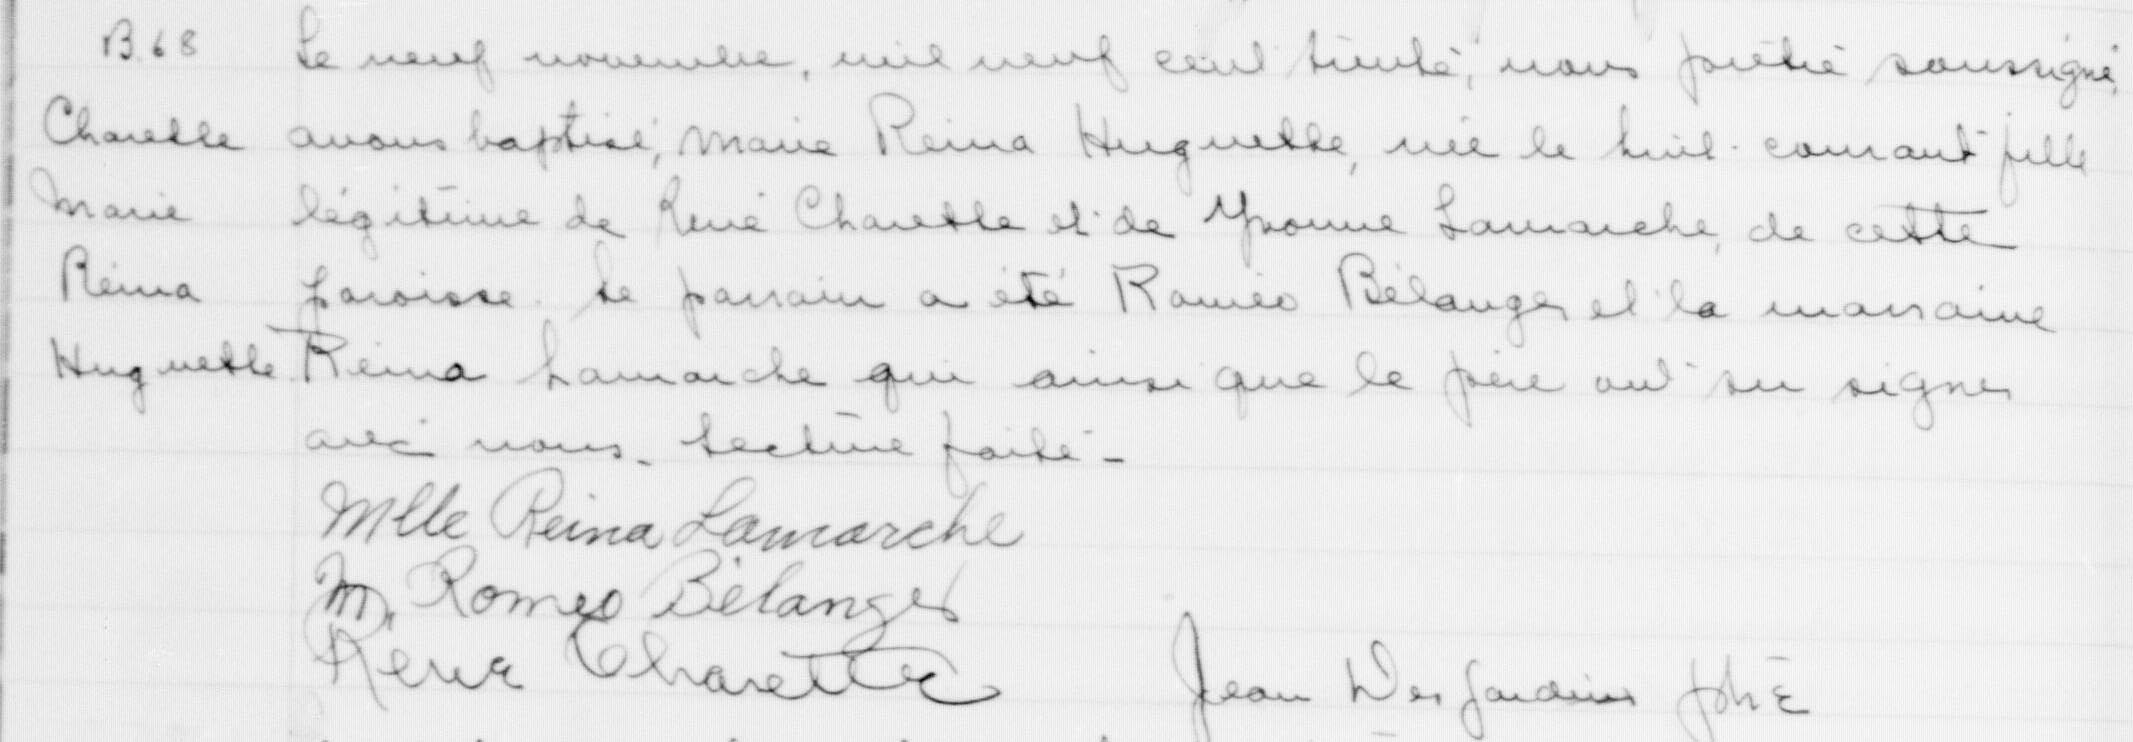 B.68
Charette
Marie
Reina
Huguette
Le neuf novembre, mil neuf cent trente, nous prêtre soussigné,
avons baptisé, Marie Reina Huguette, née le huit courant fille
légitime de René Charette et de Yvonne Lamarche, de cette
paroisse. Le parrain a été Roméo Bélanger et la marraine
Reina Lamarche qui ainsi que le père ont su signer
avec nous. Lecture faite.
Mlle Reina Lamarche
M. Romeo Bélanger
René Charette
Jean Desjardins ptre